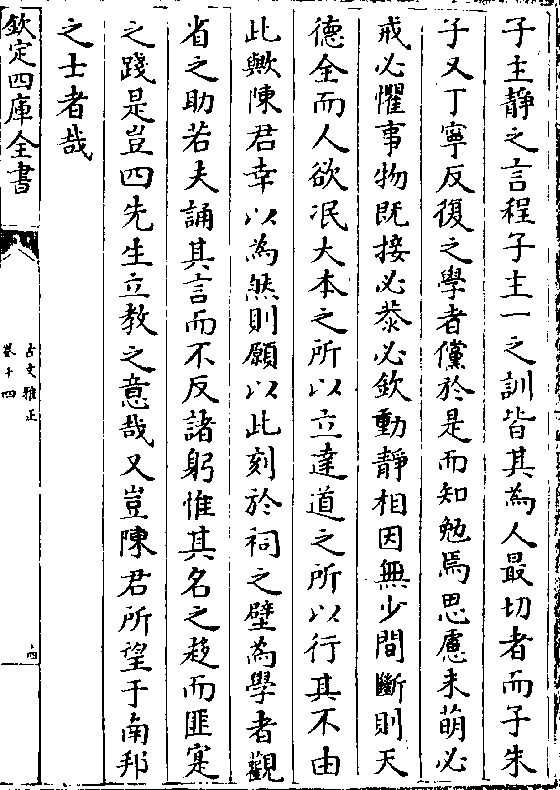 子主靜之言程子主一之訓皆其為人最切者而子朱
子又丁寧反復之學者儻於是而知勉焉思慮未萌必
戒必懼事物既接必恭必欽動靜相因無少間斷則天
德全而人欲泯大本之所以立達道之所以行其不由
此歟陳君幸以為然則願以此刻於祠之壁為學者觀
省之助若夫誦其言而不反諸躬惟其名之趍而匪寔
之踐是豈四先生立教之意哉又豈陳君所望于南邦
之士者哉
欽定四庫全書
古文雅正
卷十四
四